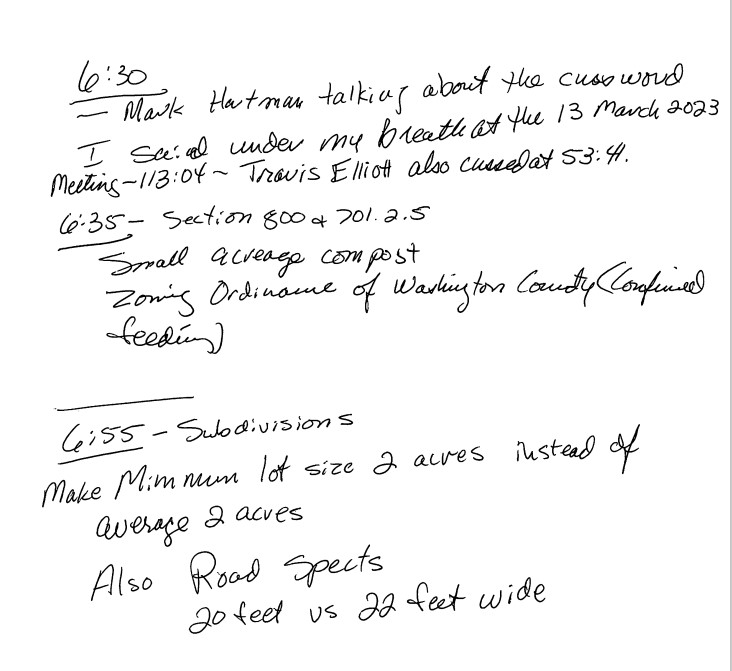 6:30
— Mark Hartman talking about the cuss word
I said under my breath at the 13 March 2023
Meeting - 113:04 ~ Travis Elliott also cussed at 53:41.
6:35 - Section 800 & 701.2.5
Small acreage compost
Zoning Ordinance of Washington County (Confined
feeding)
6:55 - Subdivisions
Make Minmum lot size 2 acres instead of
average 2 acres
Also Road Spects
20 feet vs 22 feet wide